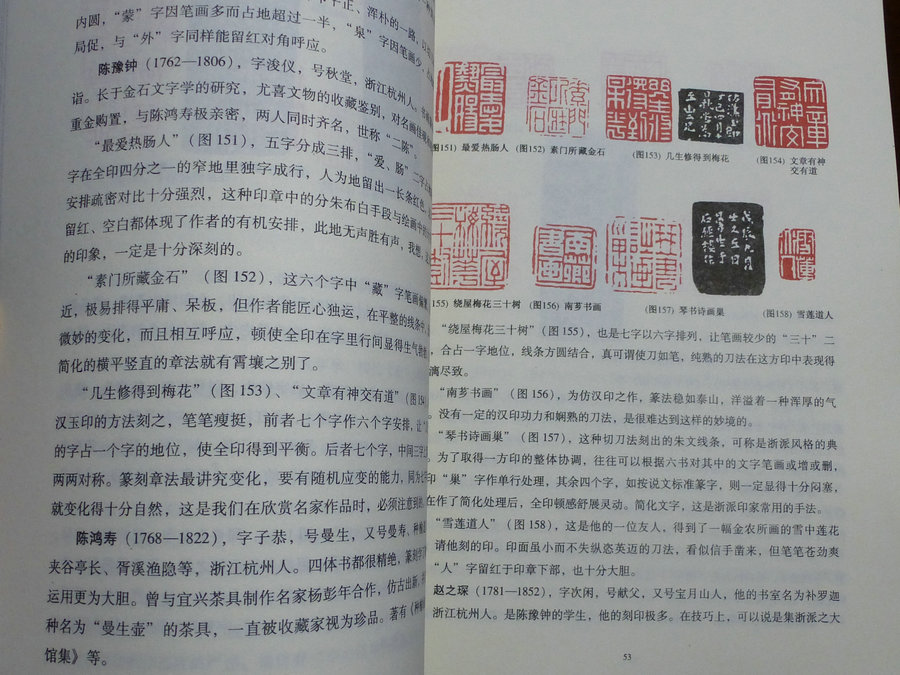 平正、浑朴的一路，以
内圆，“蒙”字因笔画多而占地超过一半，“泉”字因笔画少，
局促，与“外”字同样能留红对角呼应。
陈豫钟（1762—1806），字浚仪，号秋堂，浙江杭州人。
诣。长于金石文字学的研究，尤喜文物的收藏鉴别，对名画佳
重金购置，与陈鸿寿极亲密，两人同时齐名，世称“二陈”。
“最爱热肠人”（图151），五字分成三排，“爱、肠”二字
字在全印四分之一的窄地里独字成行，人为地留出一长条红色，
安排疏密对比十分强烈，这种印章中的分朱布白手段与绘画中
留红、空白都体现了作者的有机安排，此地无声胜有声，我想，
的印象，一定是十分深刻的。
“素门所藏金石”（图152），这六个字中“藏”字笔画
近，极易排得平庸、呆板，但作者能匠心独运，在平整的线条中，
微妙的变化，而且相互呼应，顿使全印在字里行间显得生气
简化的横平竖直的章法就有霄壤之别了。
“几生修得到梅花”（图153）、“文章有神交有道”（图154
汉玉印的方法刻之，笔笔瘦挺，前者七个字作六个字安排，让
的字占一个字的地位，使全印得到平衡。后者七个字，中间三字
两两对称。篆刻章法最讲究变化，要有随机应变的能力，同为七
就变化得十分自然，这是我们在欣赏名家作品时，必须注意到的。
陈鸿寿（1768—1822），字子恭，号曼生，又号曼寿、种榆
夹谷亭长、胥溪渔隐等，浙江杭州人。四体书都很精绝，篆刻学
运用更为大胆。曾与宜兴茶具制作名家杨彭年合作，仿古出新，
种名为“曼生壶”的茶具，一直被收藏家视为珍品。著有《种榆
馆集》等。
图151）最爱热肠人
（图152）素门所藏金石
（图153）几生修得到梅花
（图154）文章有神
交有道
155）绕屋梅花三十树
（图156）南芗书画
（图157）琴书诗画巢
（图158）雪莲道人
“绕屋梅花三十树”（图155），也是七字以六字排列，让笔画较少的“三十”二
，合占一字地位，线条方圆结合，真可谓使刀如笔，纯熟的刀法在这方印中表现得
漓尽致。
“南芗书画”（图156），为仿汉印之作，篆法稳如泰山，洋溢着一种浑厚的气
。没有一定的汉印功力和娴熟的刀法，是很难达到这样的妙境的。
“琴书诗画巢”（图157），这种切刀法刻出的朱文线条，可称是浙派风格的典
为了取得一方印的整体协调，往往可以根据六书对其中的文字笔画或增或删，
印“巢”字作单行处理，其余四个字，如按说文标准篆字，则一定显得十分闷塞，
在作了简化处理后，全印顿感舒展灵动。简化文字，这是浙派印家常用的手法。
“雪莲道人”（图158），这是他的一位友人，得到了一幅金农所画的雪中莲花
请他刻的印。印面虽小而不失纵恣英迈的刀法，看似信手凿来，但笔笔苍劲爽
“人”字留红于印章下部，也十分大胆。
赵之琛（1781—1852），字次闲，号献父，又号宝月山人，他的书室名为补罗迦
浙江杭州人。是陈豫钟的学生，他的刻印极多。在技巧上，可以说是集浙派之大
53